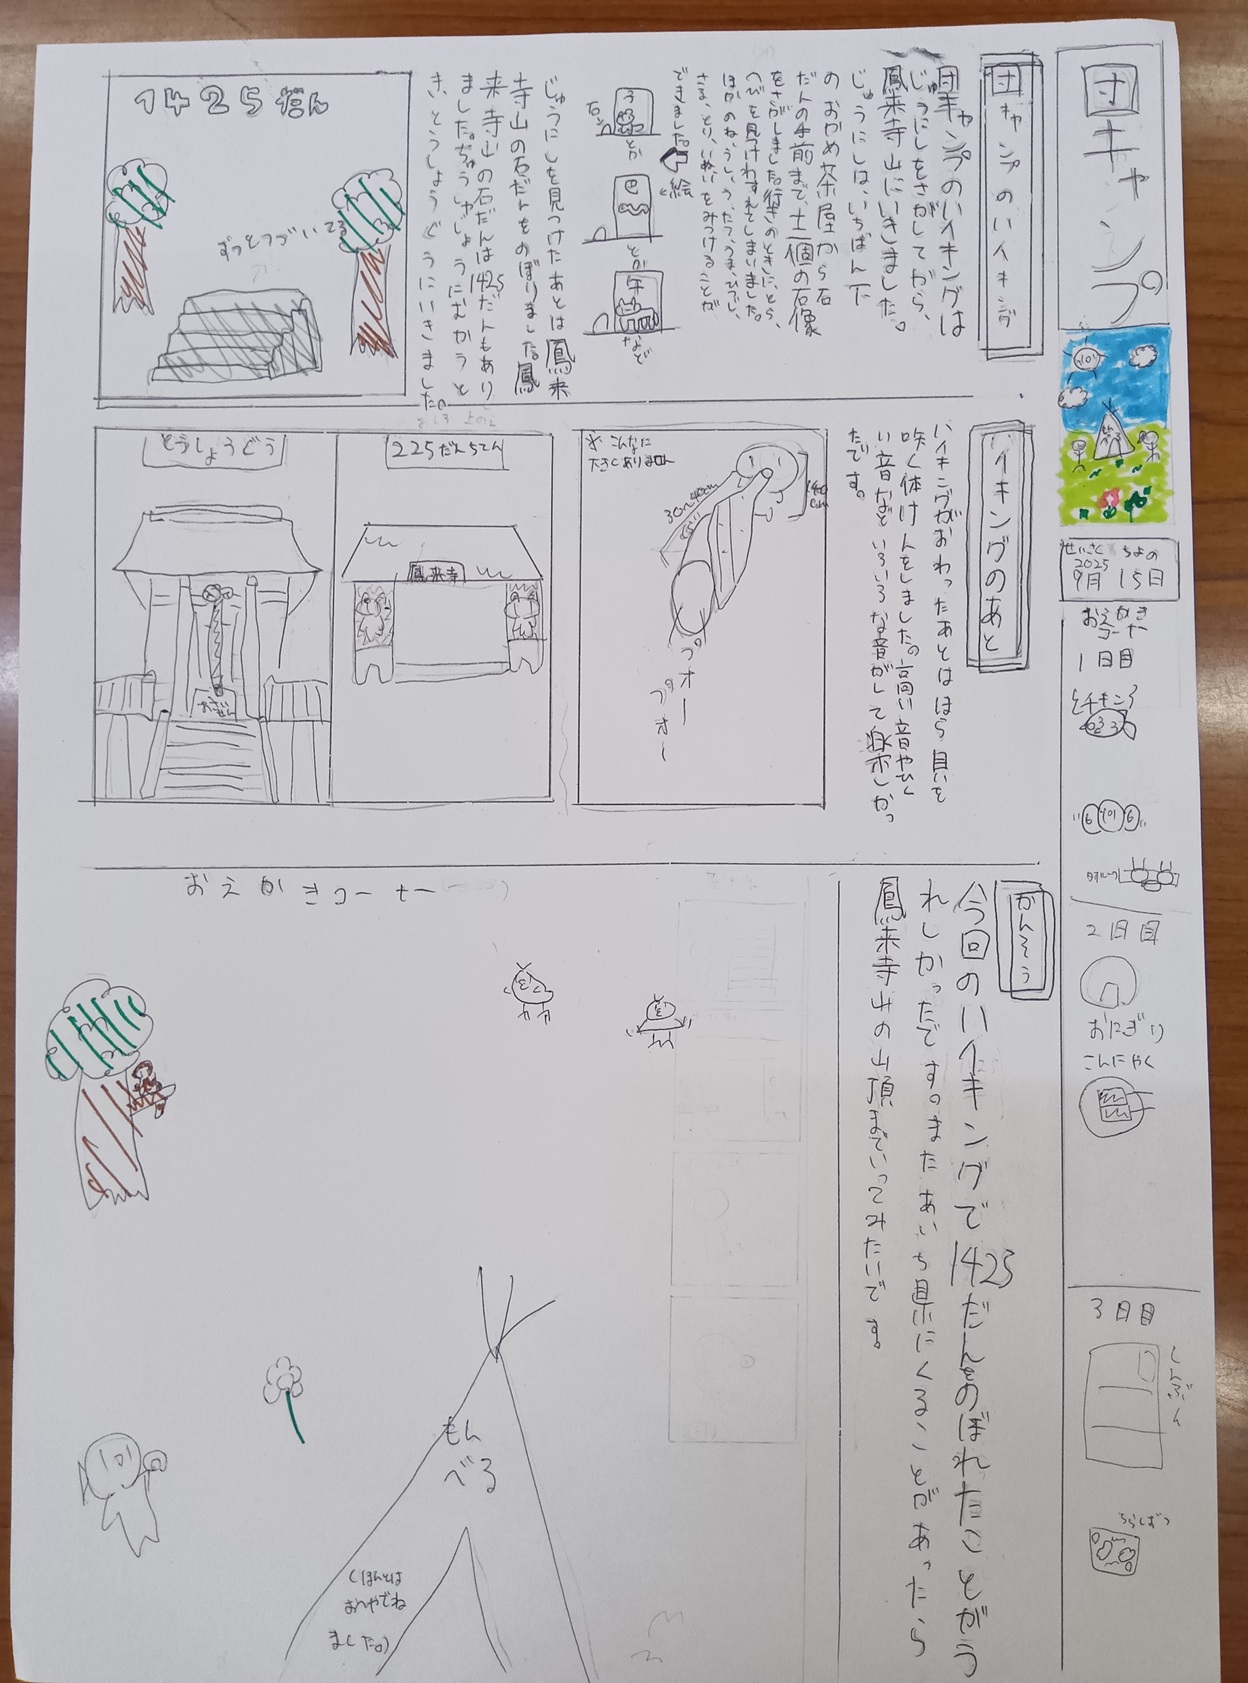 団キャンプ
せいさく ちよの
2025
9月15日
おえかき
コーナー
1日目
2日目
おにぎり
こんにゃく
3日目
しんぶん
団キャンプのハイキング
団キャンプのハイキングは
じゅうにしをさがしてから、
鳳来寺山にいきました。
じゅうにしは、いちばん下
のおかめ茶屋から石
だんの手前まで、十二個の石像
をさがしました。行きのときに、とら、
へびを見つけわすれてしまいました。
ほかのね、うし、う、たつ、うま、ひつじ、
さる、とり、いぬ、いをみつけることが
できました。
絵
石
子
とか
巳
とか
午
など
じゅうにしを見つけたあとは鳳来
寺山の石だんをのぼりました。鳳
来寺山の石だんは1425だんもあり
ました。ちゅうしゃじょうにむかうと
き、とうしょうぐうにいきました。
1425だん
ずっとつづいてる
ハイキングのあと
ハイキングがおわったあとはほら貝を
吹く体けんをしました。高い音やひく
い音など、いろいろな音がして楽しかっ
たです。
※こんなに
大きくありません
30cm~40cm
140cm
プオー
プオー
225だんちてん
鳳来寺
とうしょうぐう
おさいせん
かんそう
今回のハイキングで1425だんをのぼれたことがう
れしかったです。またあいち県にくることがあったら
鳳来寺山の山頂までいってみたいです。
おえかきコーナー
もん
べる
(ほんとは
おへやでね
ました。)